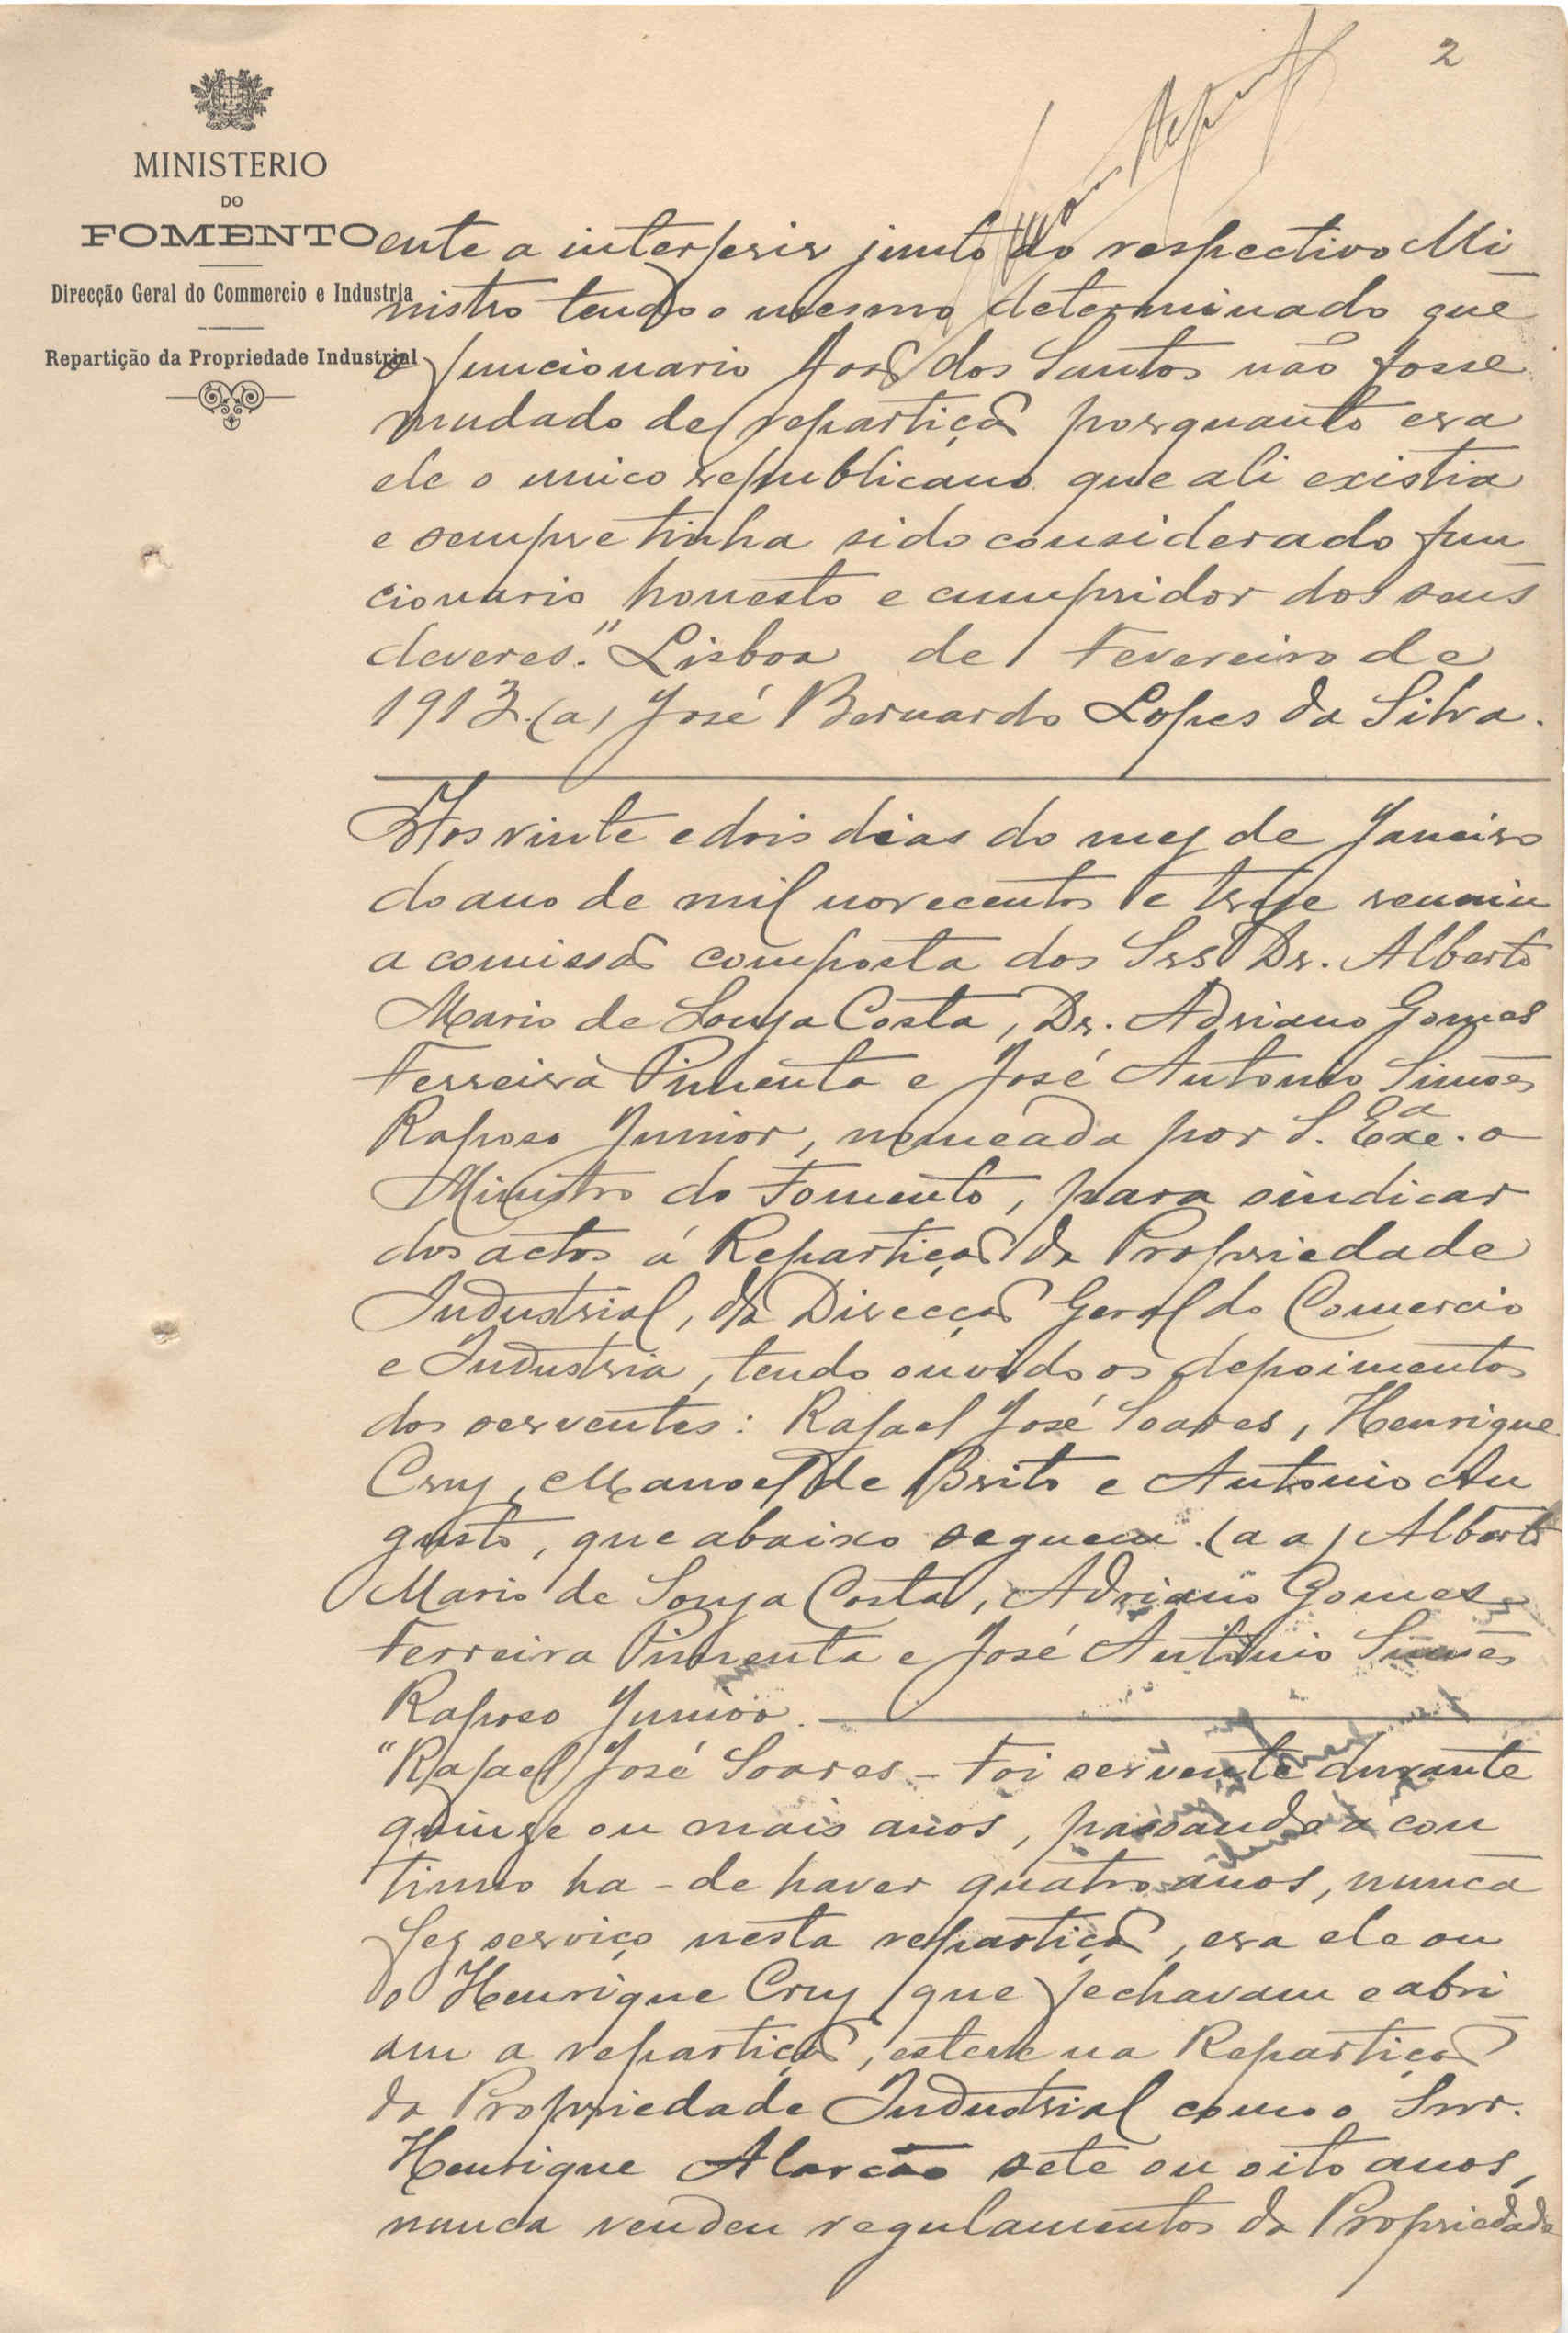 2
MINISTERIO
DO
FOMENTO
Direcção Geral do Commercio e Industria
Repartição da Propriedade Industrial
ente a interferir junto do respectivo Mi
nistro tendo o mesmo determinado que
o funcionario José dos Santos não fosse
mudado de repartição porquanto era
ele o unico republicano que ali existia
e sempre tinha sido considerado fun
cionario honesto e cumpridor dos seus
deveres." Lisboa de Fevereiro de
1913. (a) José Bernardo Lopes da Silva.
Aos vinte e dois dias do mez de Janeiro
do ano de mil novecentos e treze reuniu
a comissão composta dos Srs Dr. Alberto
Mario de Souza Costa, Dr. Adriano Gomes
Ferreira Pimenta e José Antonio Simões
Raposo Junior, nomeada por S. Exª. o
Ministro do Fomento, para sindicar
dos actos á Repartição da Propriedade
Industrial, da Direcção Geral do Comercio
e Industria, tendo ouvido os depoimentos
dos serventes: Rafael José Soares, Henrique
Cruz, Manoel de Brito e Antonio Au
gusto, que abaixo seguem. (a a) Alberto
Mario de Souza Costa, Adriano Gomes
Ferreira Pimenta e José Antonio Simões
Raposo Junior.
"Rafael José Soares - Foi servente durante
quinze ou mais anos, passando a con
tinuo ha-de haver quatro anos, nunca
fez serviço nesta repartição, era ele ou
o Henrique Cruz que fechavam e abri
am a repartição, esteve na Repartição
da Propriedade Industrial com o Snr.
Henrique Alarcão sete ou oito anos,
nunca vendeu regulamentos da Propriedade